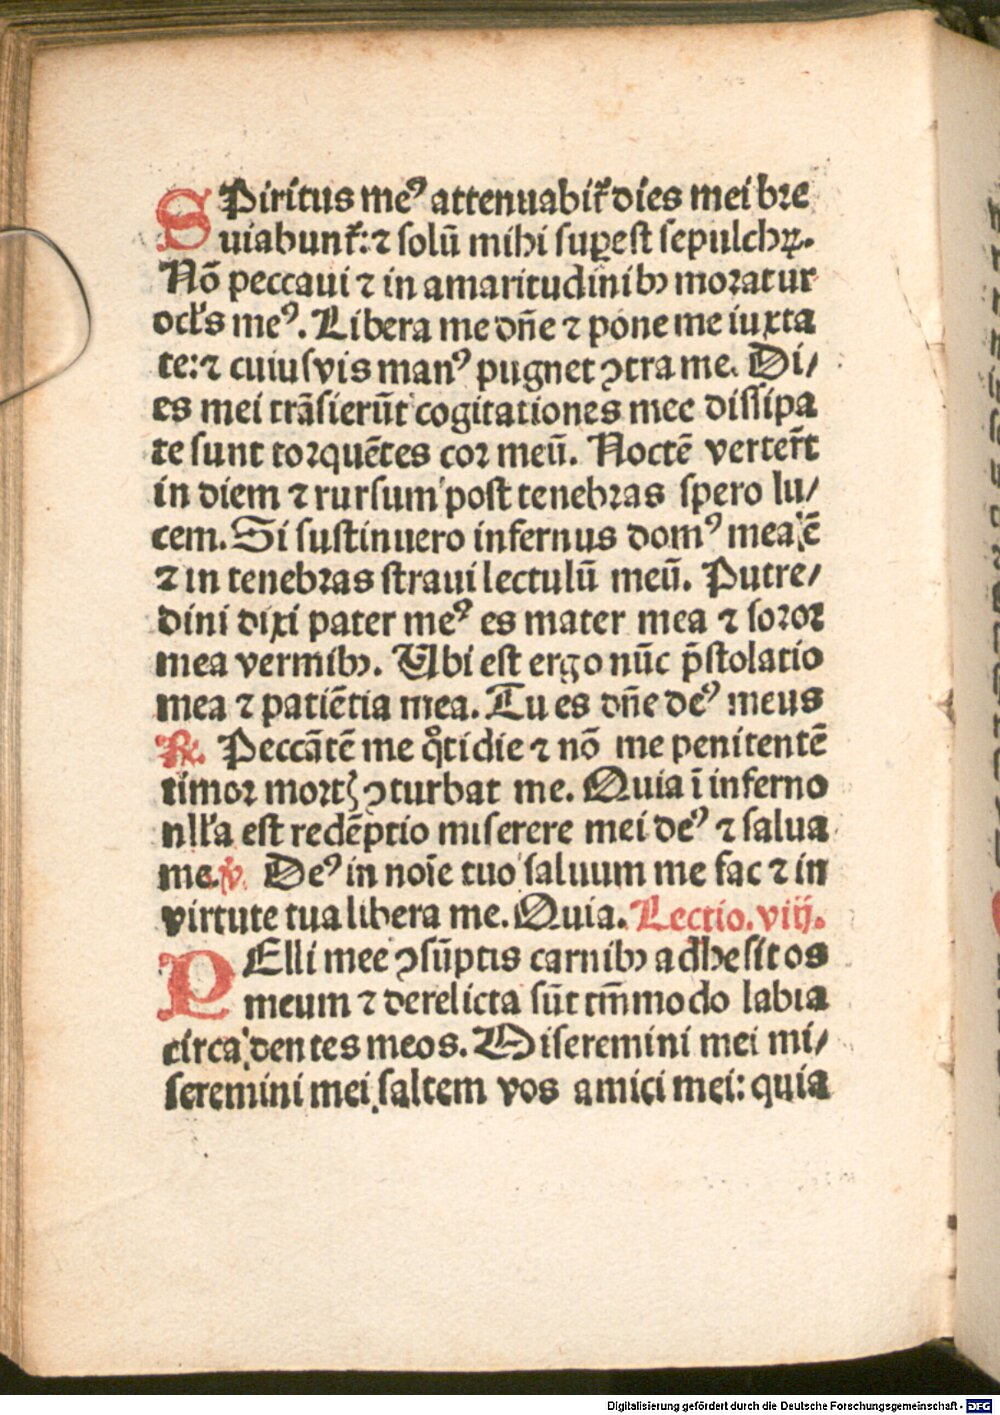 SPiritus meꝰ attenuabit᷑ dies mei bre
uiabunt᷑: ⁊ solū mihi suꝑest sepulchꝝ.
Nō peccaui ⁊ in amaritudinibꝫ moratur
ocl̓s meꝰ. Libera me dn̄e ⁊ pone me iuxta
te: ⁊ cuiusvis manꝰ pugnet ↄtra me. Di/
es mei trāsierūt cogitationes mee dissipa
te sunt torquētes cor meū. Noctē verter̄t
in diem ⁊ rursum post tenebras spero lu/
cem. Si sustinuero infernus domꝰ mea ē
⁊ in tenebras straui lectulū meū. Putre/
dini dixi pater meꝰ es mater mea ⁊ soror
mea vermibꝫ. Ubi est ergo nūc p̄stolatio
mea ⁊ patiētia mea. Tu es dn̄e deꝰ meus
℟. Peccātē me qͦtidie ⁊ nō me penitentē
timor mortꝭ ↄturbat me. Quia ī inferno
nll̓a est redēptio miserere mei deꝰ ⁊ salua
me. ℣. Deꝰ in noīe tuo saluum me fac ⁊ in
virtute tua libera me. Quia. Lectio. viij.
PElli mee ↄsūptis carnibꝫ adhesit os
meum ⁊ derelicta sūt tm̄modo labia
circa dentes meos. Miseremini mei mi/
seremini mei saltem vos amici mei: quia
Digitalisierung gefördert durch die Deutsche Forschungsgemeinschaft - DFG